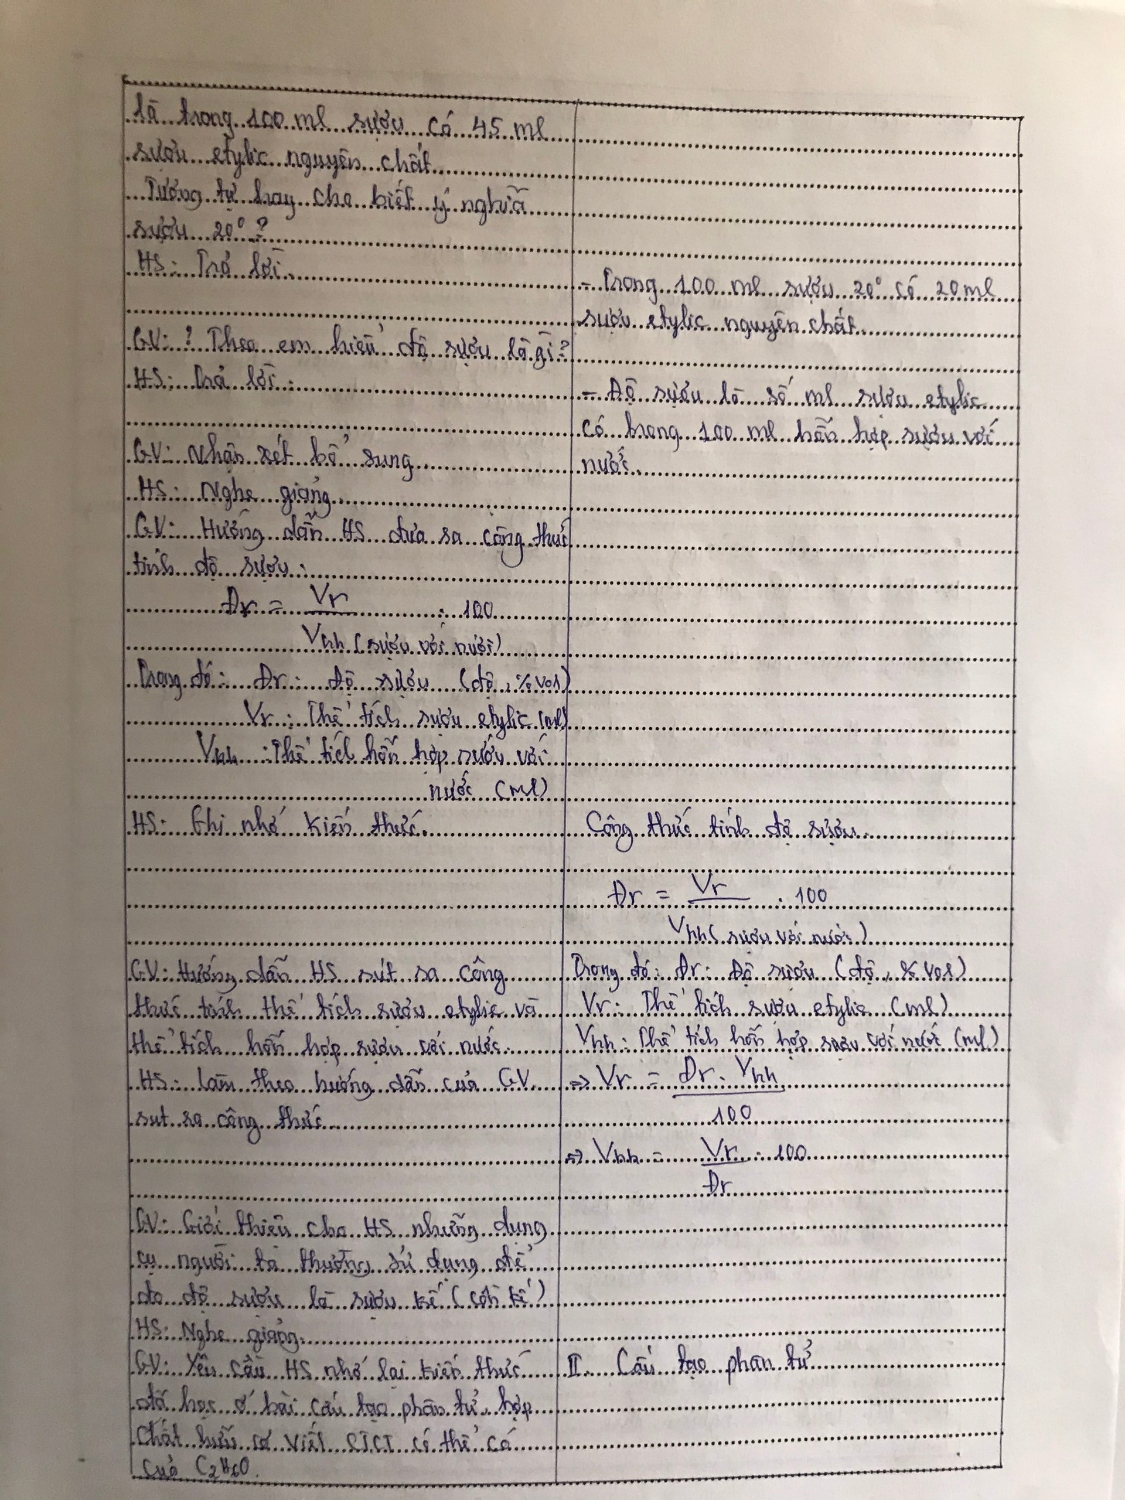 là trong 100 ml rượu có 45 ml
rượu etylic nguyên chất.
Tương tự hay cho biết ý nghĩa
rượu 20° ?
HS: Trả lời.
- Trong 100 ml rượu 20° có 20 ml
rượu etylic nguyên chất.
GV: ? Theo em hiểu độ rượu là gì?
HS: Trả lời.
- Độ rượu là số ml rượu etylic
có trong 100 ml hỗn hợp rượu với
nước.
GV: Nhận xét bổ sung
HS: Nghe giảng
GV: Hướng dẫn HS đưa ra công thức
tính độ rượu:
Đr = Vr / Vhh (rượu với nước) . 100
Trong đó: Đr: Độ rượu (độ, % vol)
Vr: Thể tích rượu etylic (ml)
Vhh: Thể tích hỗn hợp rượu với
nước (ml)
HS: Ghi nhớ kiến thức.
Công thức tính độ rượu
Đr = Vr / Vhh (rượu với nước) . 100
GV: Hướng dẫn HS rút ra công
thức tính thể tích rượu etylic và
thể tích hỗn hợp rượu với nước.
HS: làm theo hướng dẫn của GV
rút ra công thức
Trong đó: Đr: Độ rượu (độ, % vol)
Vr: Thể tích rượu etylic (ml)
Vhh: Thể tích hỗn hợp rượu với nước (ml)
=> Vr = Đr . Vhh / 100
=> Vhh = Vr / Đr . 100
GV: Giới thiệu cho HS những dụng
cụ người ta thường sử dụng để
đo độ rượu là rượu kế (cồn kế)
HS: Nghe giảng.
GV: Yêu cầu HS nhớ lại kiến thức
đã học ở bài cấu tạo phân tử hợp
chất hữu cơ viết CTCT có thể có
của C2H6O.
II. Cấu tạo phân tử